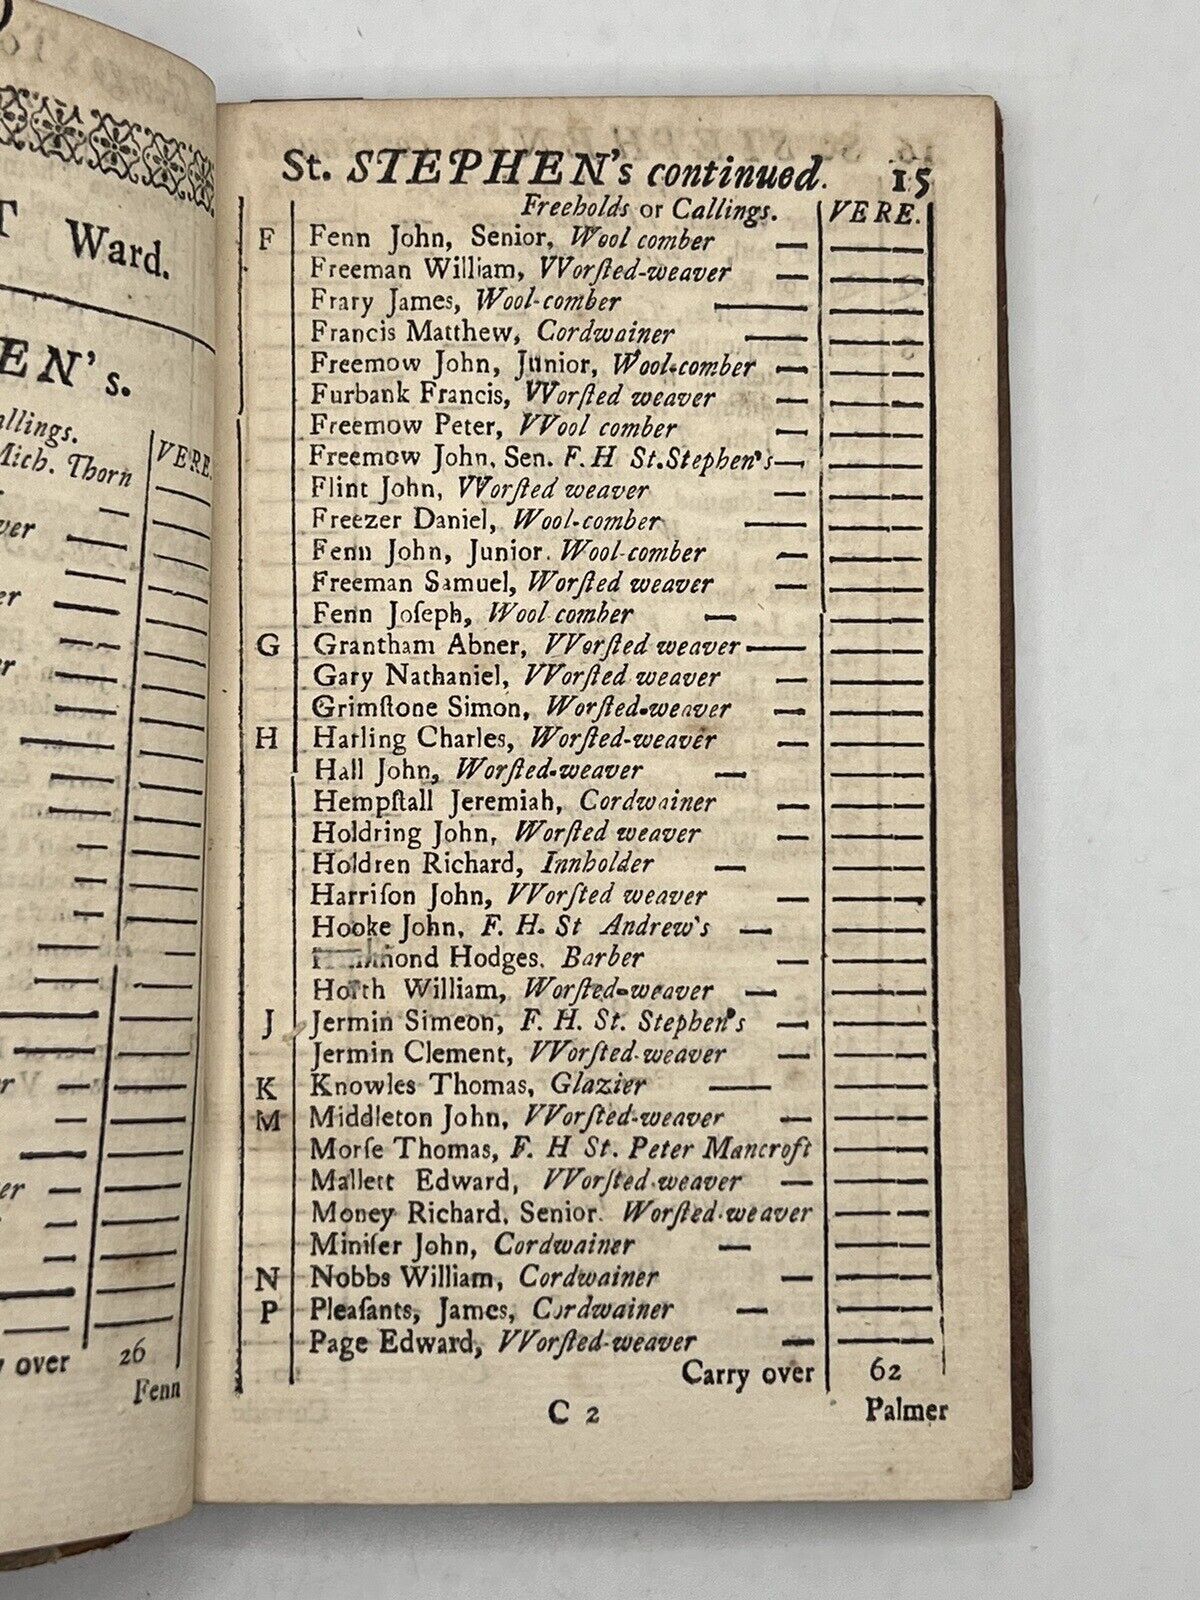 T Ward.
EN's.
allings.
Mich. Thorn
VERE.
ver
er
er
er
y over 26
Fenn
St. STEPHEN's continued. 15
Freeholds or Callings. VERE.
F Fenn John, Senior, Wool comber
Freeman William, VVorſted-weaver
Frary James, Wool-comber
Francis Matthew, Cordwainer
Freemow John, Junior, Wool-comber
Furbank Francis, VVorſted weaver
Freemow Peter, VVool comber
Freemow John, Sen. F. H St. Stephen's
Flint John, VVorſted weaver
Freezer Daniel, Wool-comber
Fenn John, Junior. Wool-comber
Freeman Samuel, Worſted weaver
Fenn Joſeph, Wool comber
G Grantham Abner, VVorſted weaver
Gary Nathaniel, VVorſted weaver
Grimſtone Simon, Worſted-weaver
H Harling Charles, Worſted-weaver
Hall John, Worſted-weaver
Hempſtall Jeremiah, Cordwainer
Holdring John, Worſted weaver
Holdren Richard, Innholder
Harriſon John, VVorſted weaver
Hooke John, F. H. St Andrew's
Hodges. Barber
Horth William, Worſted-weaver
J Jermin Simeon, F. H. St. Stephen's
Jermin Clement, VVorſted-weaver
K Knowles Thomas, Glazier
M Middleton John, VVorſted-weaver
Morſe Thomas, F. H St. Peter Mancroft
Mallett Edward, VVorſted-weaver
Money Richard, Senior. Worſted-weaver
Miniſer John, Cordwainer
N Nobbs William, Cordwainer
P Pleaſants, James, Cordwainer
Page Edward, VVorſted-weaver
Carry over 62
C 2 Palmer